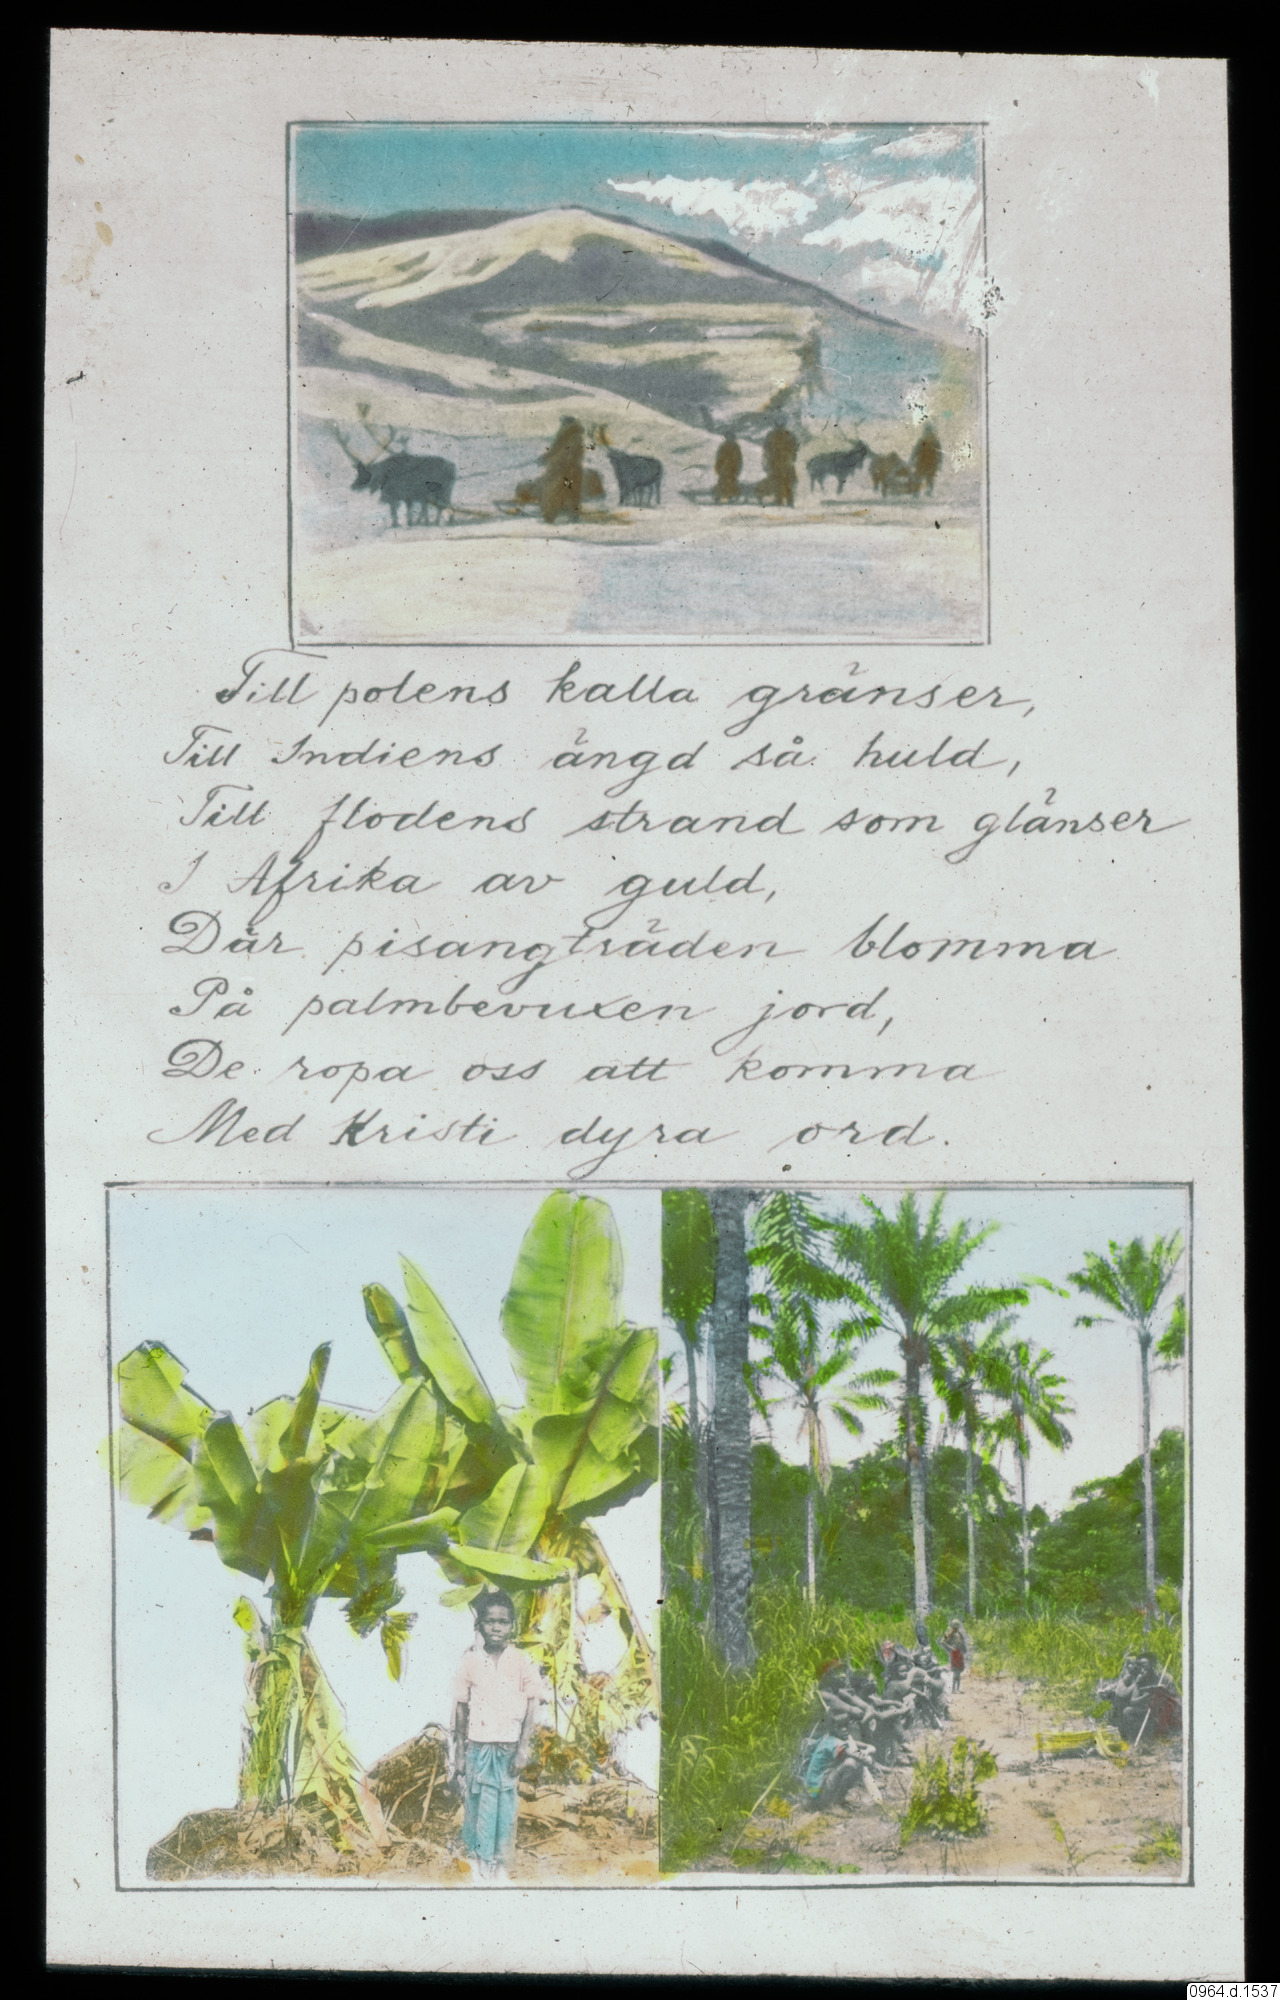 Till polens kalla gränser,
Till Indiens ängd så huld,
Till flodens strand som glänser
I Afrika av guld,
Där pisangträden blomma
På palmbevuxen jord,
De ropa oss att komma
Med Kristi dyra ord.
0964.d.1537